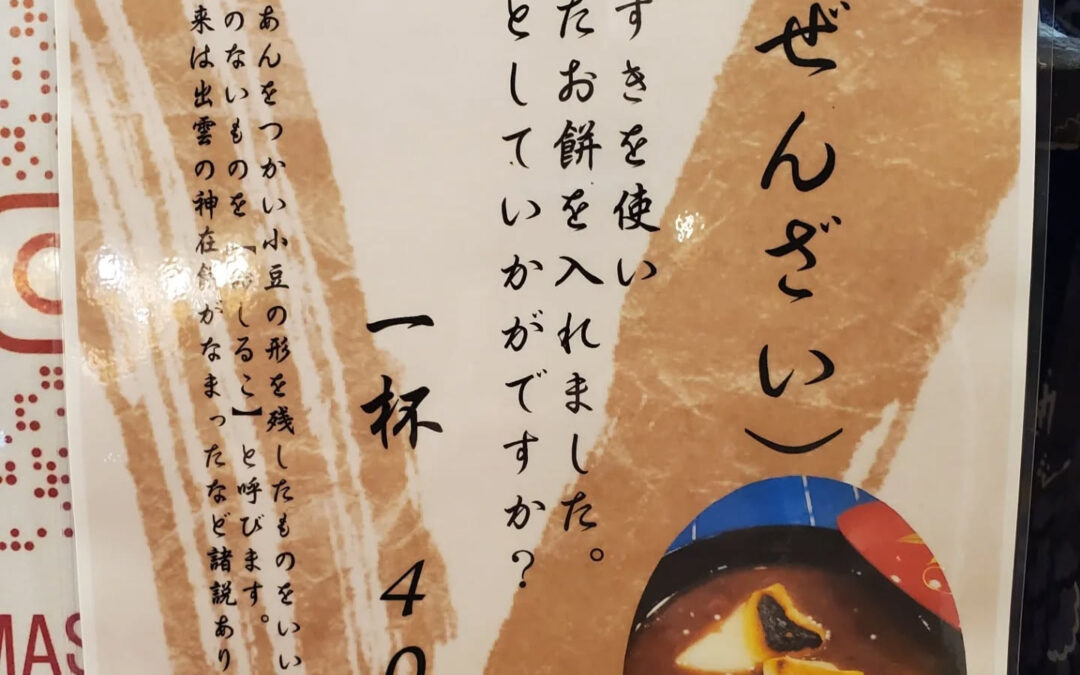 ぜんざい）
すきを使い
たお餅を入れました。
としていかがですか？
一杯 40
あんをつかい小豆の形を残したものをいい
のないものを【おしるこ】と呼びます。
来は出雲の神在餅がなまったなど諸説あり
MAS